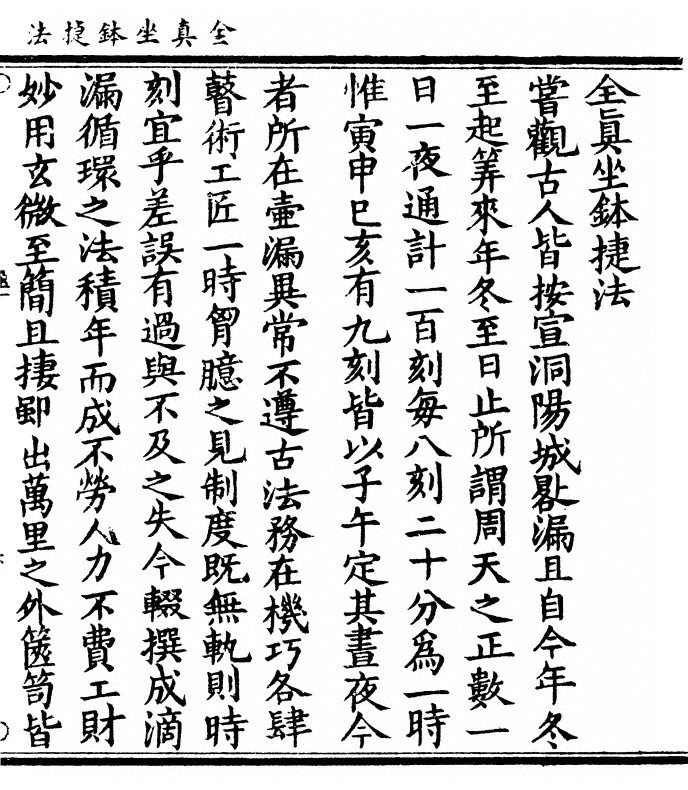 全真坐鉢捷法
全眞坐鉢捷法
嘗觀古人皆按宣洞陽城晷漏且自今年冬
至起筭來年冬至日止所謂周天之正數一
日一夜通計一百刻每八刻二十分爲一時
惟寅申巳亥有九刻皆以子午定其晝夜今
者所在壷漏異常不遵古法務在機巧各肆
瞽術工匠一時胷臆之見制度旣無軌則時
刻宜乎差誤有過與不及之失今輟撰成滴
漏循環之法積年而成不勞人力不費工財
妙用玄微至簡且捷郢出萬里之外篋笥皆